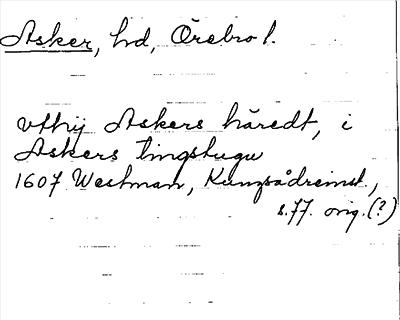 Asker, hd, Örebro l.
vthij Askers häredt, i
Askers tingstugu
1607 Westman, Kungsådreinst,
s. 77. orig. (?)